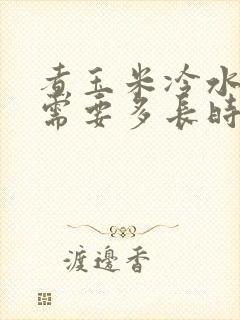 煮玉米冷水
需要多長時
渡邊香